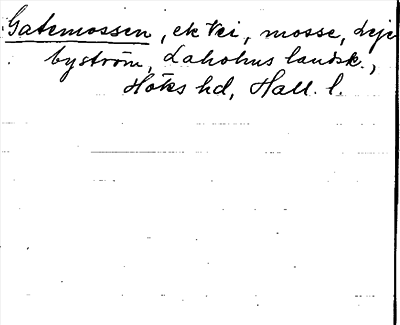 Gatemossen, ek Vei, mosse, Leje
byström, Laholms landsk.,
Höks hd, Hall. l.